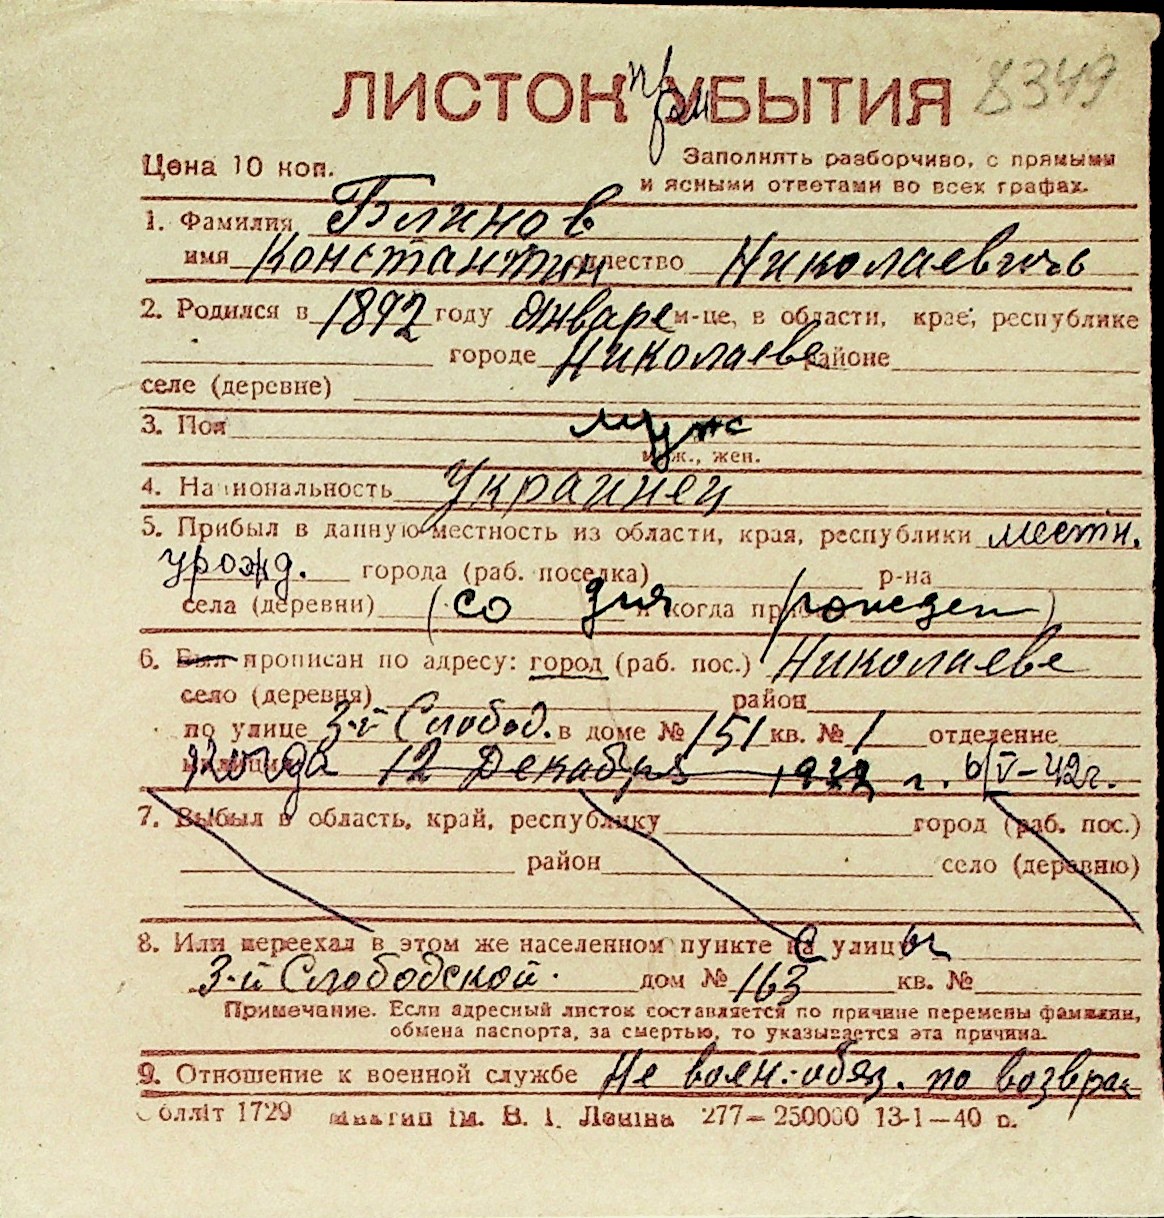 8349
ЛИСТОК прибЫТИЯ
Цена 10 коп.
Заполнять разборчиво, с прямыми
и ясными ответами во всех графах.
1. Фамилия Блинов
имя Константин отчество Николаевичь
2. Родился в 1892 году Январе м-це, в области, крае, республике
городе Николаеве районе
селе (деревне)
3. Пол муж
муж., жен.
4. Национальность Украинец
5. Прибыл в данную местность из области, края, республики местн.
урожд. города (раб. поселка) р-на
села (деревни) (со дня и когда рожден)
6. Был прописан по адресу: город (раб. пос.) Николаеве
село (деревня) район
по улице 3-й Слобод. в доме № 151 кв. № 1 отделение
12 Декабря г. 6/V-42г.
7. Выбыл в область, край, республику город (раб. пос.)
район село (деревню)
8. Или переехал в этом же населенном пункте с улицы
3-й Слободской. дом № 163 кв. №
Примечание. Если адресный листок составляется по причине перемены фамилии,
обмена паспорта, за смертью, то указывается эта причина.
9. Отношение к военной службе Не воен.-обяз. по возврас
Обллiт 1729 iм. В. I. Ленiна 277—250000 13-1—40 р.